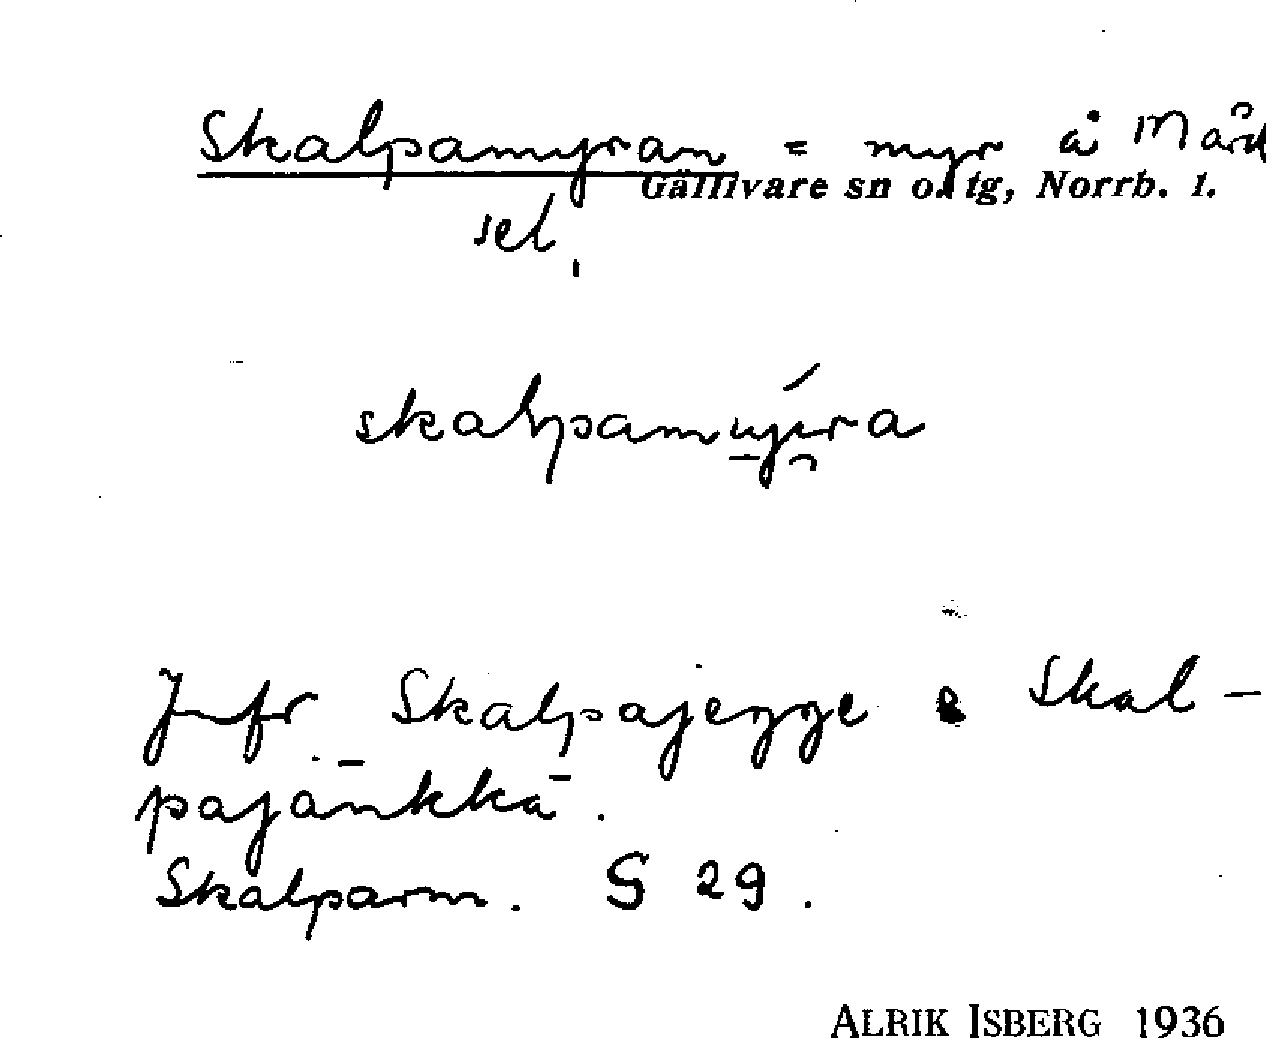 Skalpamyran = myr å Mård
Gällivare sn o. tg, Norrb. l.
sel.
skalpamyra
Jmfr Skalpajegge o Skal-
pajänkkä.
Skalparm. S 29.
ALRIK ISBERG 1936